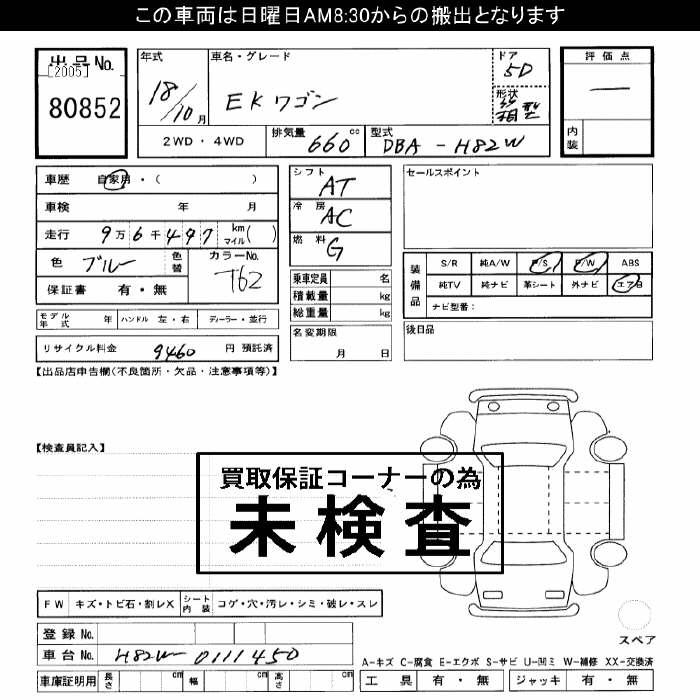 この車両は日曜日AM8:30からの搬出となります
出品No.
[2005]
80852
年式
18/10月
車名・グレード
EKワゴン
ドア
5D
形状
箱型
2WD・4WD
排気量
660cc
型式
DBA-H82W
評価点
―
内装
車歴 自家用・( )
車検 年 月
走行 9万6千497 km マイル( )
色 ブルー 色替
カラーNo.
T62
保証書 有・無
モデル年式 年 ハンドル 左・右 ディーラー・並行
リサイクル料金 9460 円 預託済
シフト
AT
冷房
AC
燃料
G
乗車定員 名
積載量 kg
総重量 kg
名変期限
月 日
セールスポイント
装備品
S/R 純A/W P/S P/W ABS
純TV 純ナビ 革シート 外ナビ エアB
ナビ型番:
後日品
【出品店申告欄(不良箇所・欠品・注意事項等)】
【検査員記入】
買取保証コーナーの為
未検査
FW キズ・トビ石・割レX シート内装 コゲ・穴・汚レ・シミ・破レ・スレ
登録No.
車台No. H82W-0111450
車庫証明用 長さ cm 幅 cm 高さ cm
スペア
A-キズ C-腐食 E-エクボ S-サビ U-凹ミ W-補修 XX-交換済
工具 有・無 ジャッキ 有・無